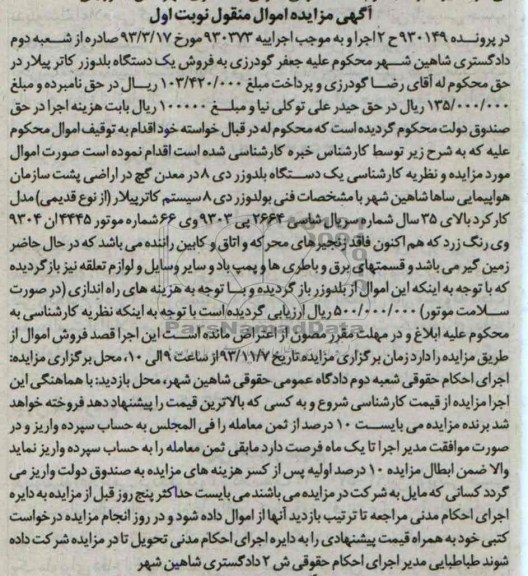 آگهی مزایده اموال منقول نوبت اول
در پرونده ۹۳۰۱۴۹ ح ۲ اجرا و به موجب اجراییه ۹۳۰۳۷۳ مورخ ۹۳/۳/۱۷ صادره از شعبه دوم
دادگستری شاهین شهر محکوم علیه جعفر گودرزی به فروش یک دستگاه بلدوزر کاتر پیلار در
حق محکوم له آقای رضا گودرزی و پرداخت مبلغ ۱۰۳/۴۲۰/۰۰۰ ریال در حق نامبرده و مبلغ
۱۳۵/۰۰۰/۰۰۰ ریال در حق حیدر علی تو کلی نیا و مبلغ ۱۰۰۰۰۰ ریال بابت هزینه اجرا در حق
صندوق دولت محکوم گردیده است که محکوم له در قبال خواسته خود اقدام به توقیف اموال محکوم
علیه که به شرح زیر توسط کارشناس خبره کارشناسی شده است اقدام نموده است صورت اموال
مورد مزایده و نظریه کارشناسی یک دستگاه بلدوزر دی ۸ در معدن گچ در اراضی پشت سازمان
هواپیمایی ساها شاهین شهر با مشخصات فنی بولدوزر دی ۸ سیستم کاترپیلار (از نوع قدیمی) مدل
کارکرد بالای ۳۵ سال شماره سریال شاسی ۲۶۶۴ پی ۹۳۰۳ وی ۶۶ شماره موتور ۴۴۴۵ ان ۹۳۰۴
وی رنگ زرد که هم اکنون فاقد زنجیرهای محرکه و اتاق و کابین راننده می باشد که در حال حاضر
زمین گیر می باشد و قسمتهای برق و باطری ها و پمپ باد و سایر وسایل و لوازم تعلقه نیز باز گردیده
که با توجه به اینکه این اموال از بلدوزر باز گردیده و با توجه به هزینه های راه اندازی (در صورت
سلامت موتور) ۵۰۰/۰۰۰/۰۰۰ ریال ارزیابی گردیده است با توجه به اینکه نظریه کارشناسی به
محکوم علیه ابلاغ و در مهلت مقرر مصون از اعتراض مانده است این اجرا قصد فروش اموال از
طریق مزایده را دارد زمان برگزاری مزایده تاریخ ۹۳/۱۱/۷ از ساعت ۹ الی ۱۰، محل برگزاری مزایده:
اجرای احکام حقوقی شعبه دوم دادگاه عمومی حقوقی شاهین شهر، محل بازدید: با هماهنگی این
اجرا مزایده از قیمت کارشناسی شروع و به کسی که بالاترین قیمت را پیشنهاد دهد فروخته خواهد
شد برنده مزایده می بایست ۱۰ درصد از ثمن معامله را فی المجلس به حساب سپرده واریز و در
صورت موافقت مدیر اجرا تا یک ماه فرصت دارد مابقی ثمن معامله را به حساب سپرده واریز نماید
والا ضمن ابطال مزایده ۱۰ درصد اولیه پس از کسر هزینه های مزایده به صندوق دولت واریز می
گردد کسانی که مایل به شرکت در مزایده می باشند می بایست حداکثر پنج روز قبل از مزایده به دایره
اجرای احکام مدنی مراجعه تا ترتیب بازدید آنها از اموال داده شود و در روز انجام مزایده درخواست
کتبی خود به همراه قیمت پیشنهادی را به دایره اجرای احکام مدنی تحویل تا در مزایده شرکت داده
شوند طباطبایی مدیر اجرای احکام حقوقی ش ۲ دادگستری شاهین شهر